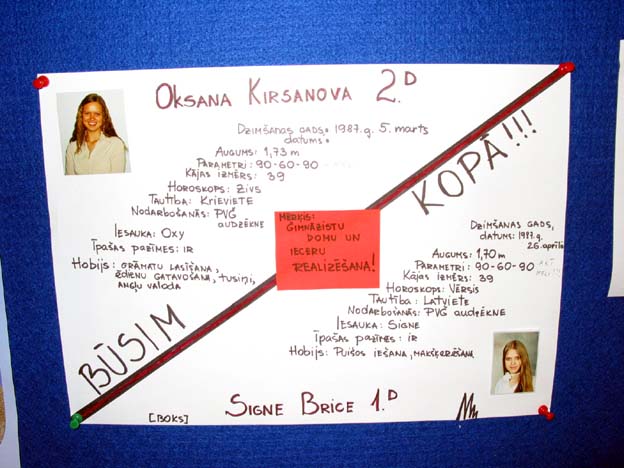 Oksana Kirsanova 2.D
Dzimšanas gads, 1987.g. 5. marts
datums:
Augums: 1,73 m
Parametri: 90-60-90
Kājas izmērs: 39
Horoskops: Zivs
Tautība: Krieviete
Nodarbošanās: PVG
audzēkne
Iesauka: Oxy
Īpašas pazīmes: ir
Hobijs: grāmatu lasīšana,
ēdienu gatavošana, tusiņi,
angļu valoda
BŪSIM
KOPĀ!!!
Mērķis:
Ģimnāzistu
domu un
ieceru
realizēšana!
Dzimšanas gads,
datums: 1987.g.
26.aprīlis
Augums: 1,70 m
Parametri: 90-60-90
Kājas izmērs: 39
Horoskops: Vērsis
Tautība: Latviete
Nodarbošanās: PVG audzēkne
Iesauka: Signe
Īpašas pazīmes: ir
Hobijs: Puišos iešana, makšķerēšana
[BOKS]
Signe Brice 1.D